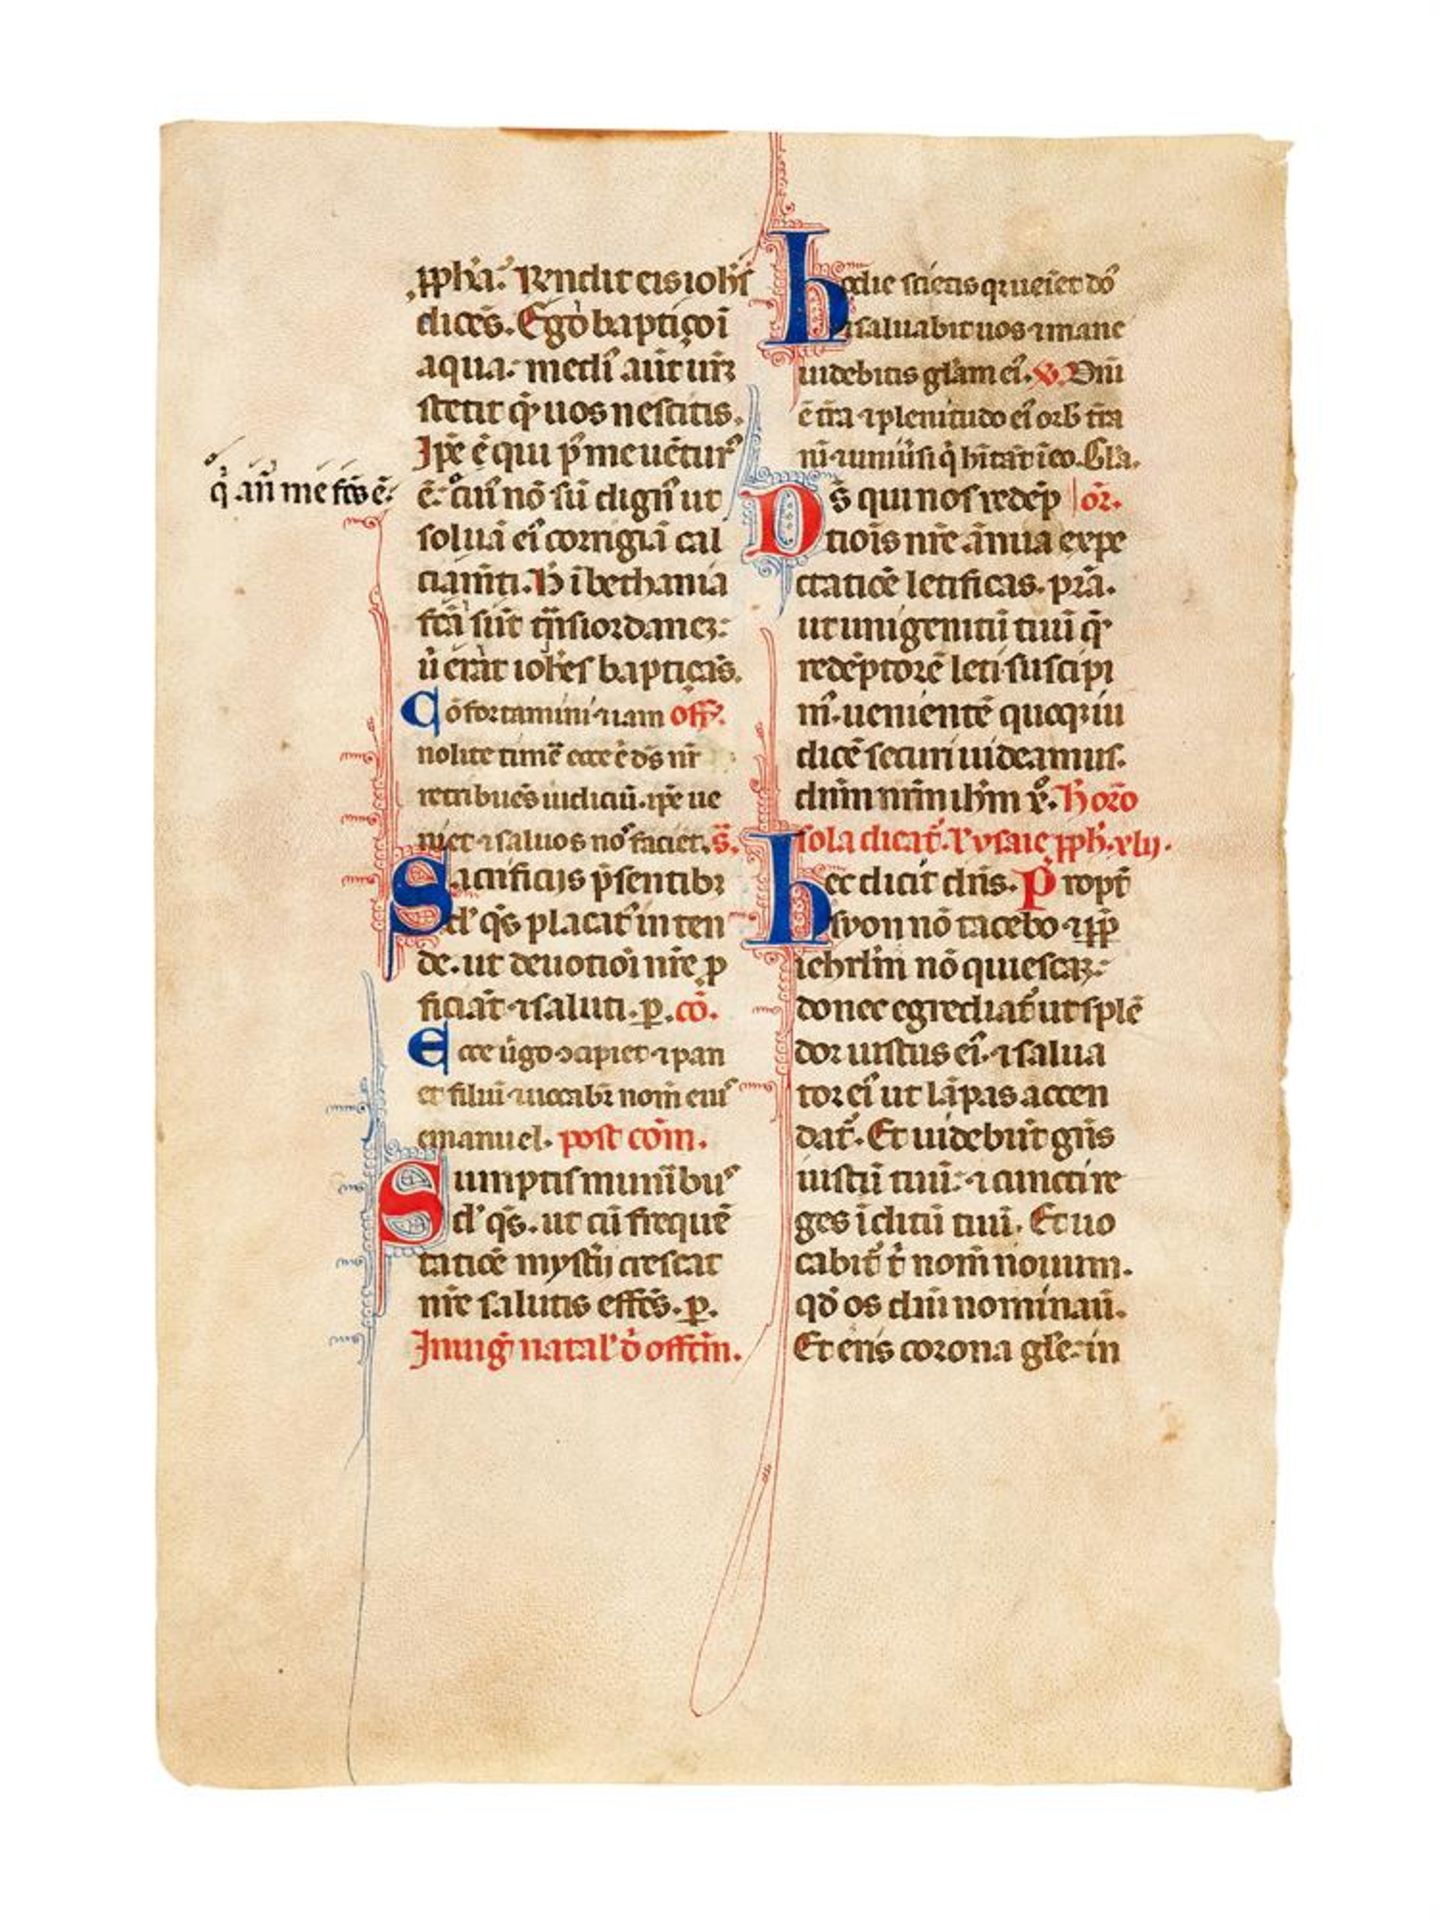 ꝓph̄a. Rendit eis ioh̄s
dicēs. Ego baptiço ī
aqua. mediˀ aūt ur̄ꝫ
stetit qͥ uos nescitis.
Ip̄e ē qui p̄ me uētur᾿
q̇ an̄ me fc̄s ē.
ē. cuiˀ nō sū dignˀ ut
soluā eiˀ corrigiā cal
ciam̄ti. H̄ ī bethania
fcā sūt tn̄s iordaneꝫ.
ū erāt ioh̄es baptiçās.
Cōfortamini ⁊ iam off᾿.
nolite timē ecce ē ds̄ nr̄
retribuēs iudiciū. ip̄e ue
niet ⁊ saluos noˀ faciet. s̄.
Sacrificijs p̄sentibꝫ
d' qs̄ placatˀ inten
de. ut deuotiōi nr̄e ꝓ
ficiāt ⁊ saluti. ꝑ. cō.
Ecce ūgo ↄcipiet ⁊ pari
et filiū ⁊ uocabr̄ nom̄ eiuˀ
emanuel. post com̄.
Sumptis munībuˀ
d' qs̄. ut cū frequē
tatiōe myst̄ij crescat
nr̄e salutis effc̄s. ꝑ.
In uiḡ natal' d̄ offm̄.
Hodie scietis qꝛ ueiet do᾿
⁊ saluabit uos ⁊ mane
uidebitis gl̄am eiˀ. v̄. Dnī
ē tr̄a ⁊ plenitudo eiˀ orbˀ tr̄a
nˀ ⁊ uniūsi q̇ hītāt ī eo. Gl̄a.
Ds̄ qui nos redēp or̄.
tiōis nr̄e ānua expe
ctatiōe letificas. pr̄a.
ut unigenitū tuū qͥ
redēptorē leti suscipi
mˀ. uenientē quoqꝫ iu
dicē securi uideamus.
dn̄m nr̄m ih̄m x̄. H̄ oro᾿
sola dicatˀ. L ysaie ꝓph̄. xlij.
Hec dicit dn̄s. Propt̄
syon nō tacebo. ⁊ ꝓp̄
ieh̄rlm̄ nō quiescaꝫ.
donec egrediatˀ ut splē
dor iustus eiˀ. ⁊ salua
tor eiˀ ut lāpas accen
datˀ. Et uidebūt gn̄s
iustū tuū. ⁊ cuncti re
ges īclitū tuū. Et uo
cabitˀ t̄ nom̄ nouum.
qd̄ os dn̄i nominau᾿.
Et eris corona gl̄e. in